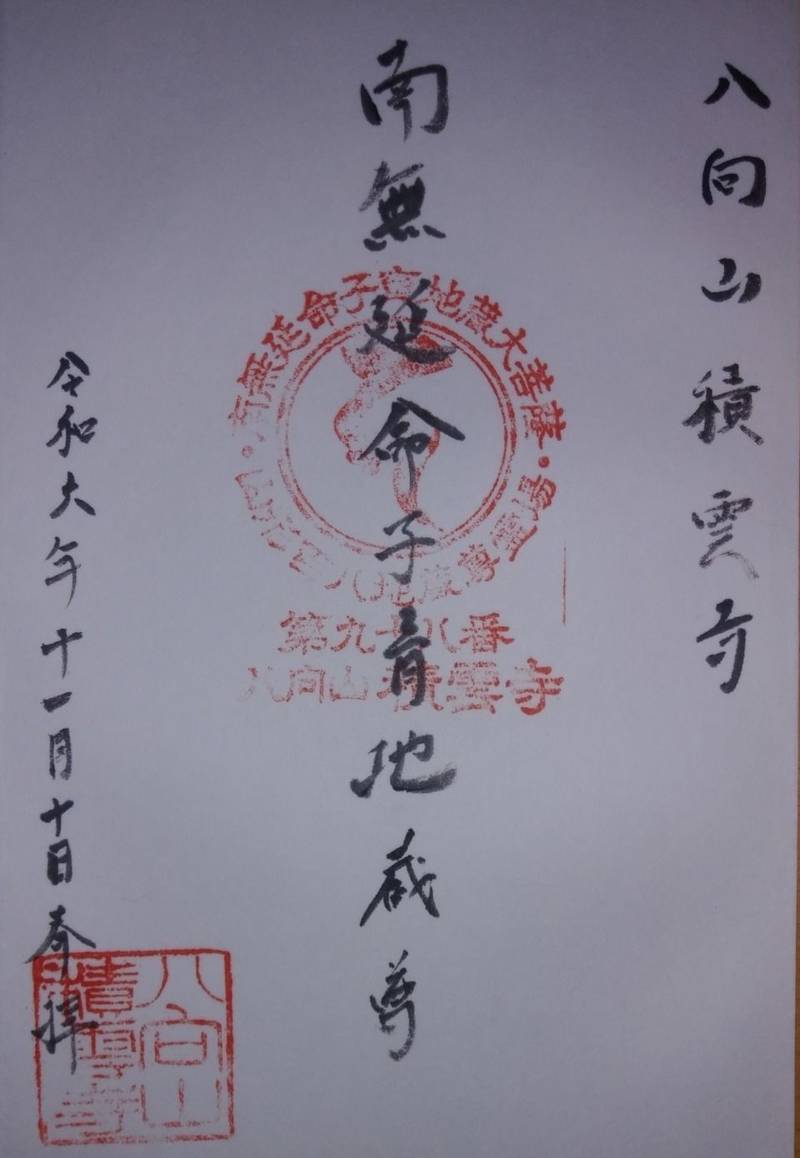 八向山積雲寺
南無延命子育地蔵尊
令和六年十一月十日奉拝
南無延命子育地蔵大菩薩
百八地蔵尊霊場
第九十八番
八向山積雲寺
八向山
積雲寺